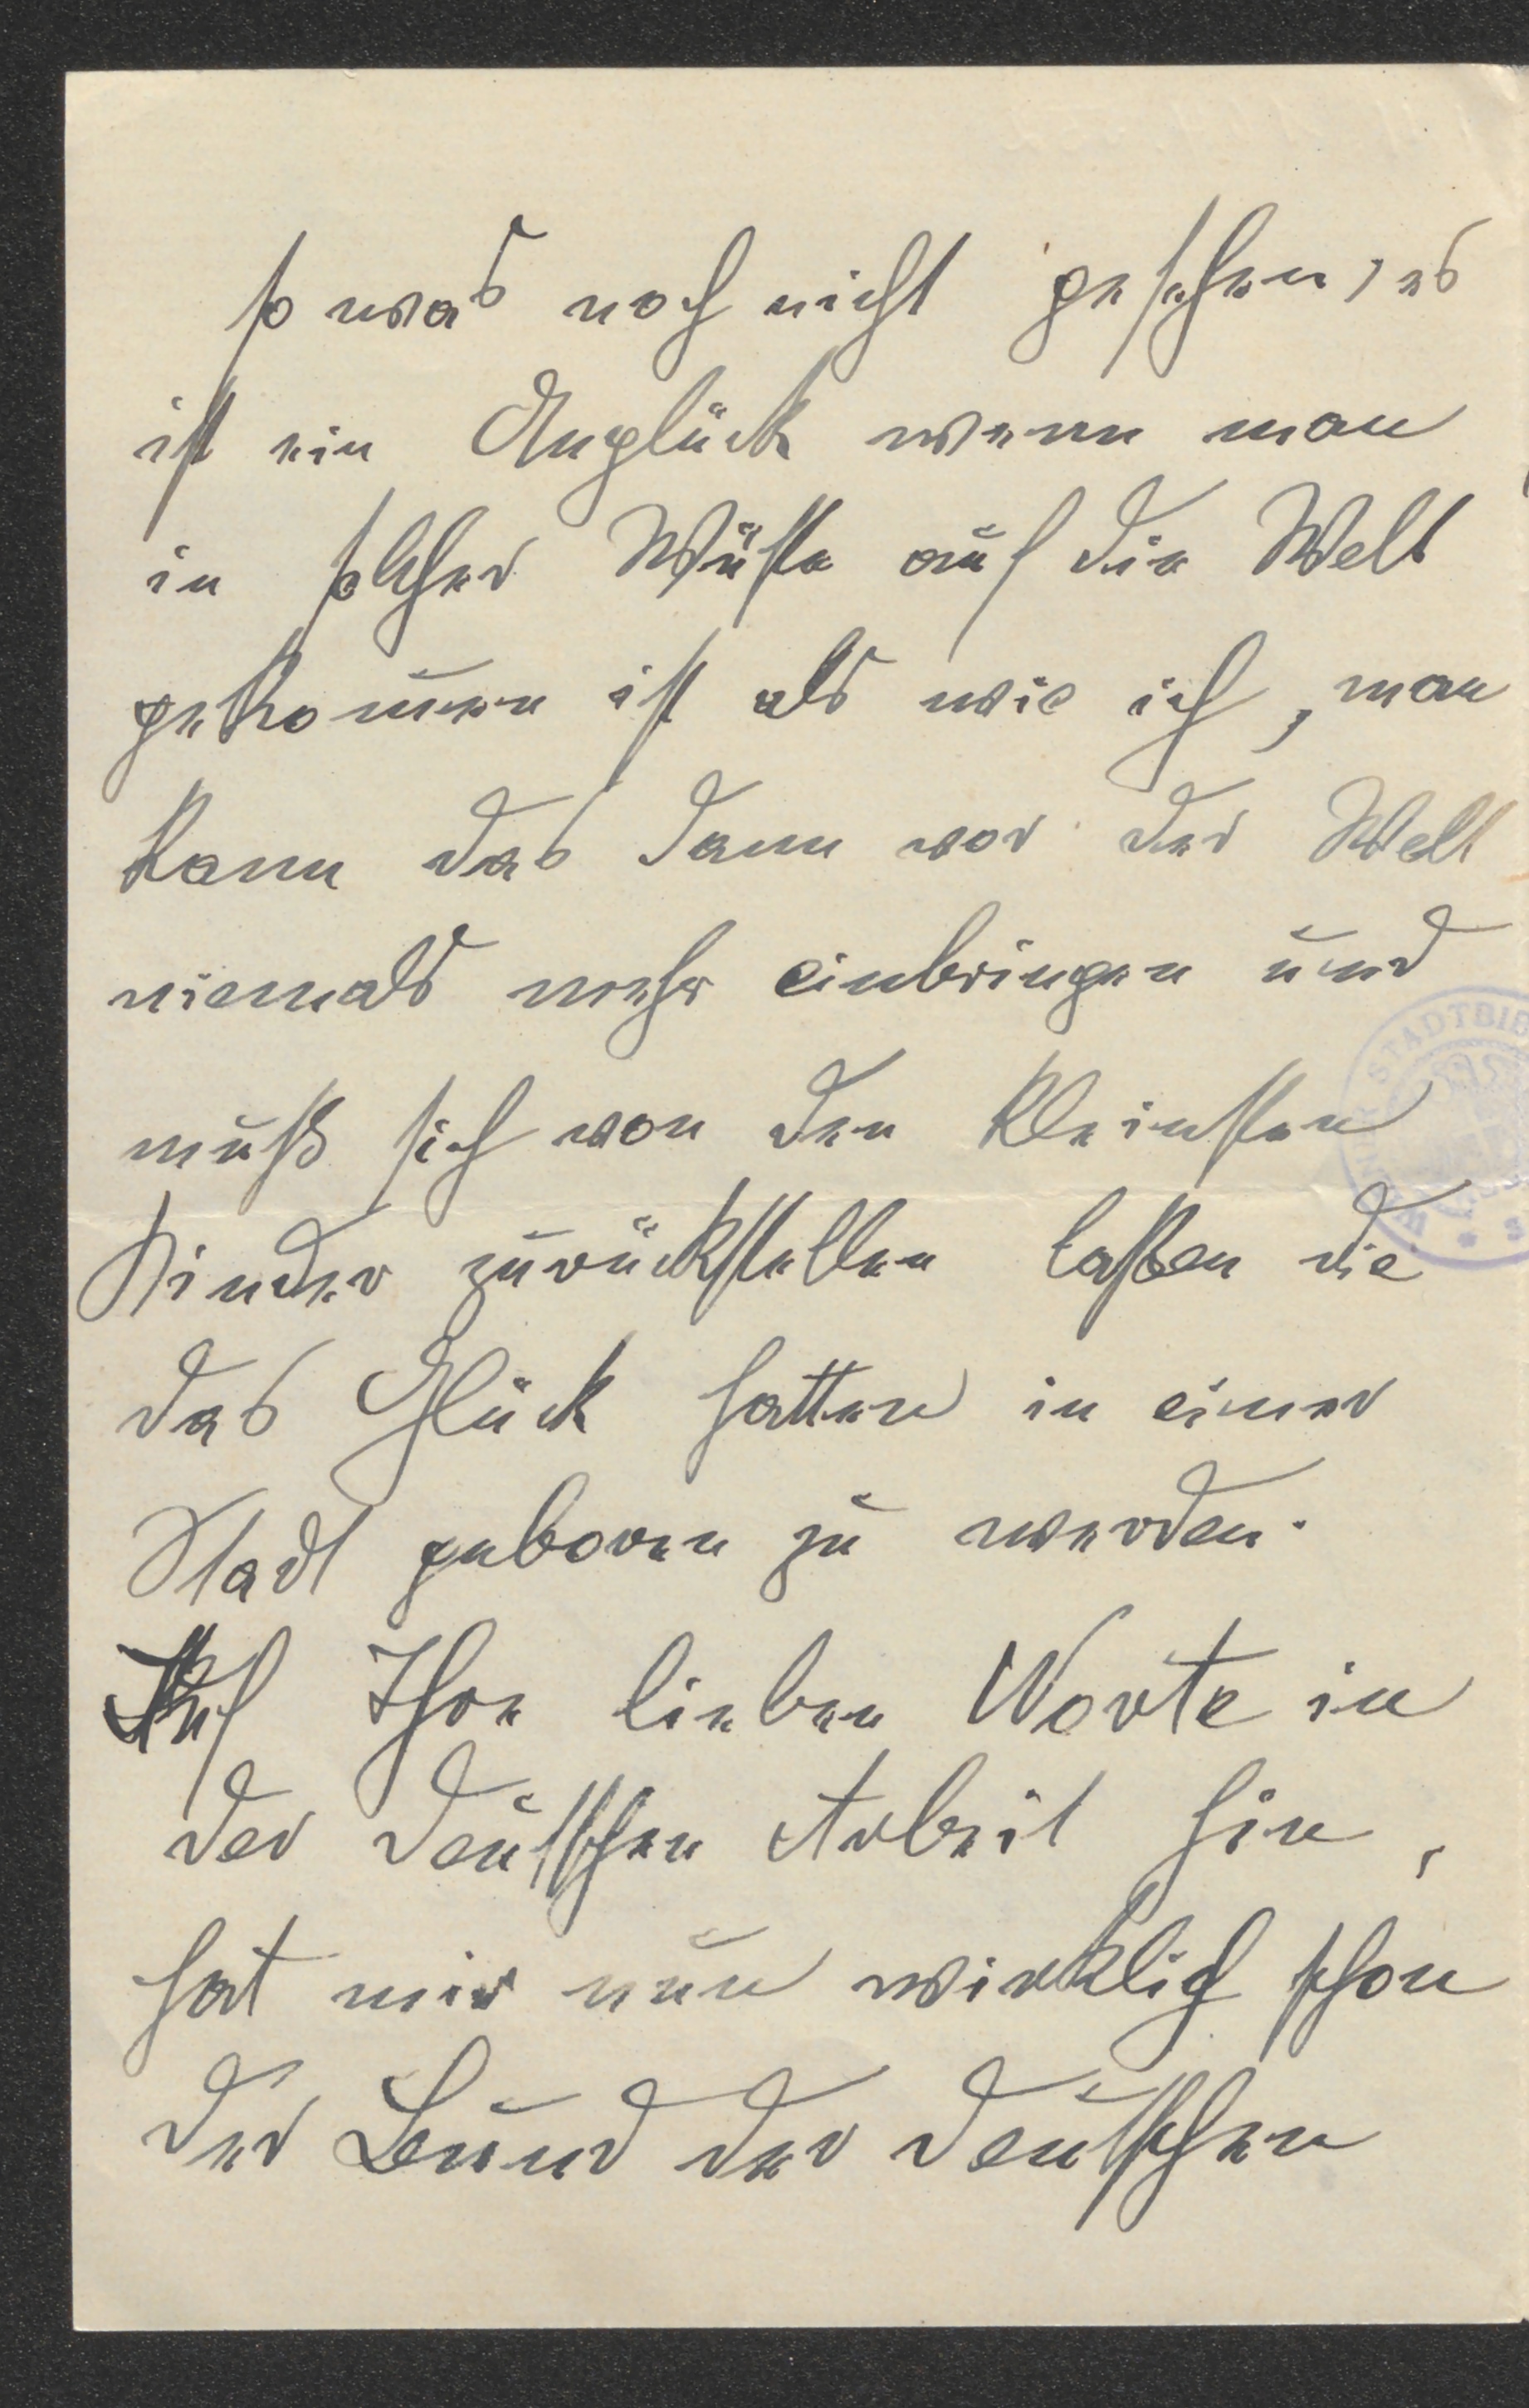 so was noch nicht gesehen, es
ist ein Unglück wenn man
in solcher Wüste auf die Welt
gekom̅en ist als wie ich, man
kann das dann vor der Welt
niemals mehr einbringen und
muß sich von den kleinsten
Kinder zurückstellen laßen die
das Glück hatten in einer
Stadt geboren zu werden.
Auf Ihre lieben Worte in
der Deutschen Arbeit hin,
hat mir nun wirklich schon
der Bund der Deutschen